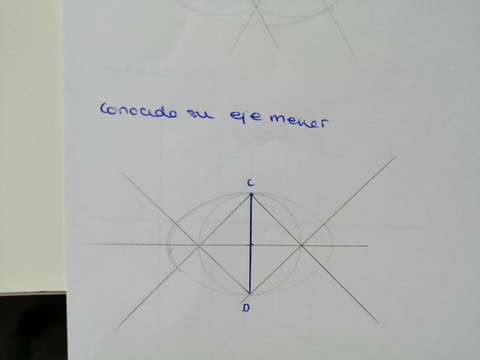 conocido su eje menor
C
D